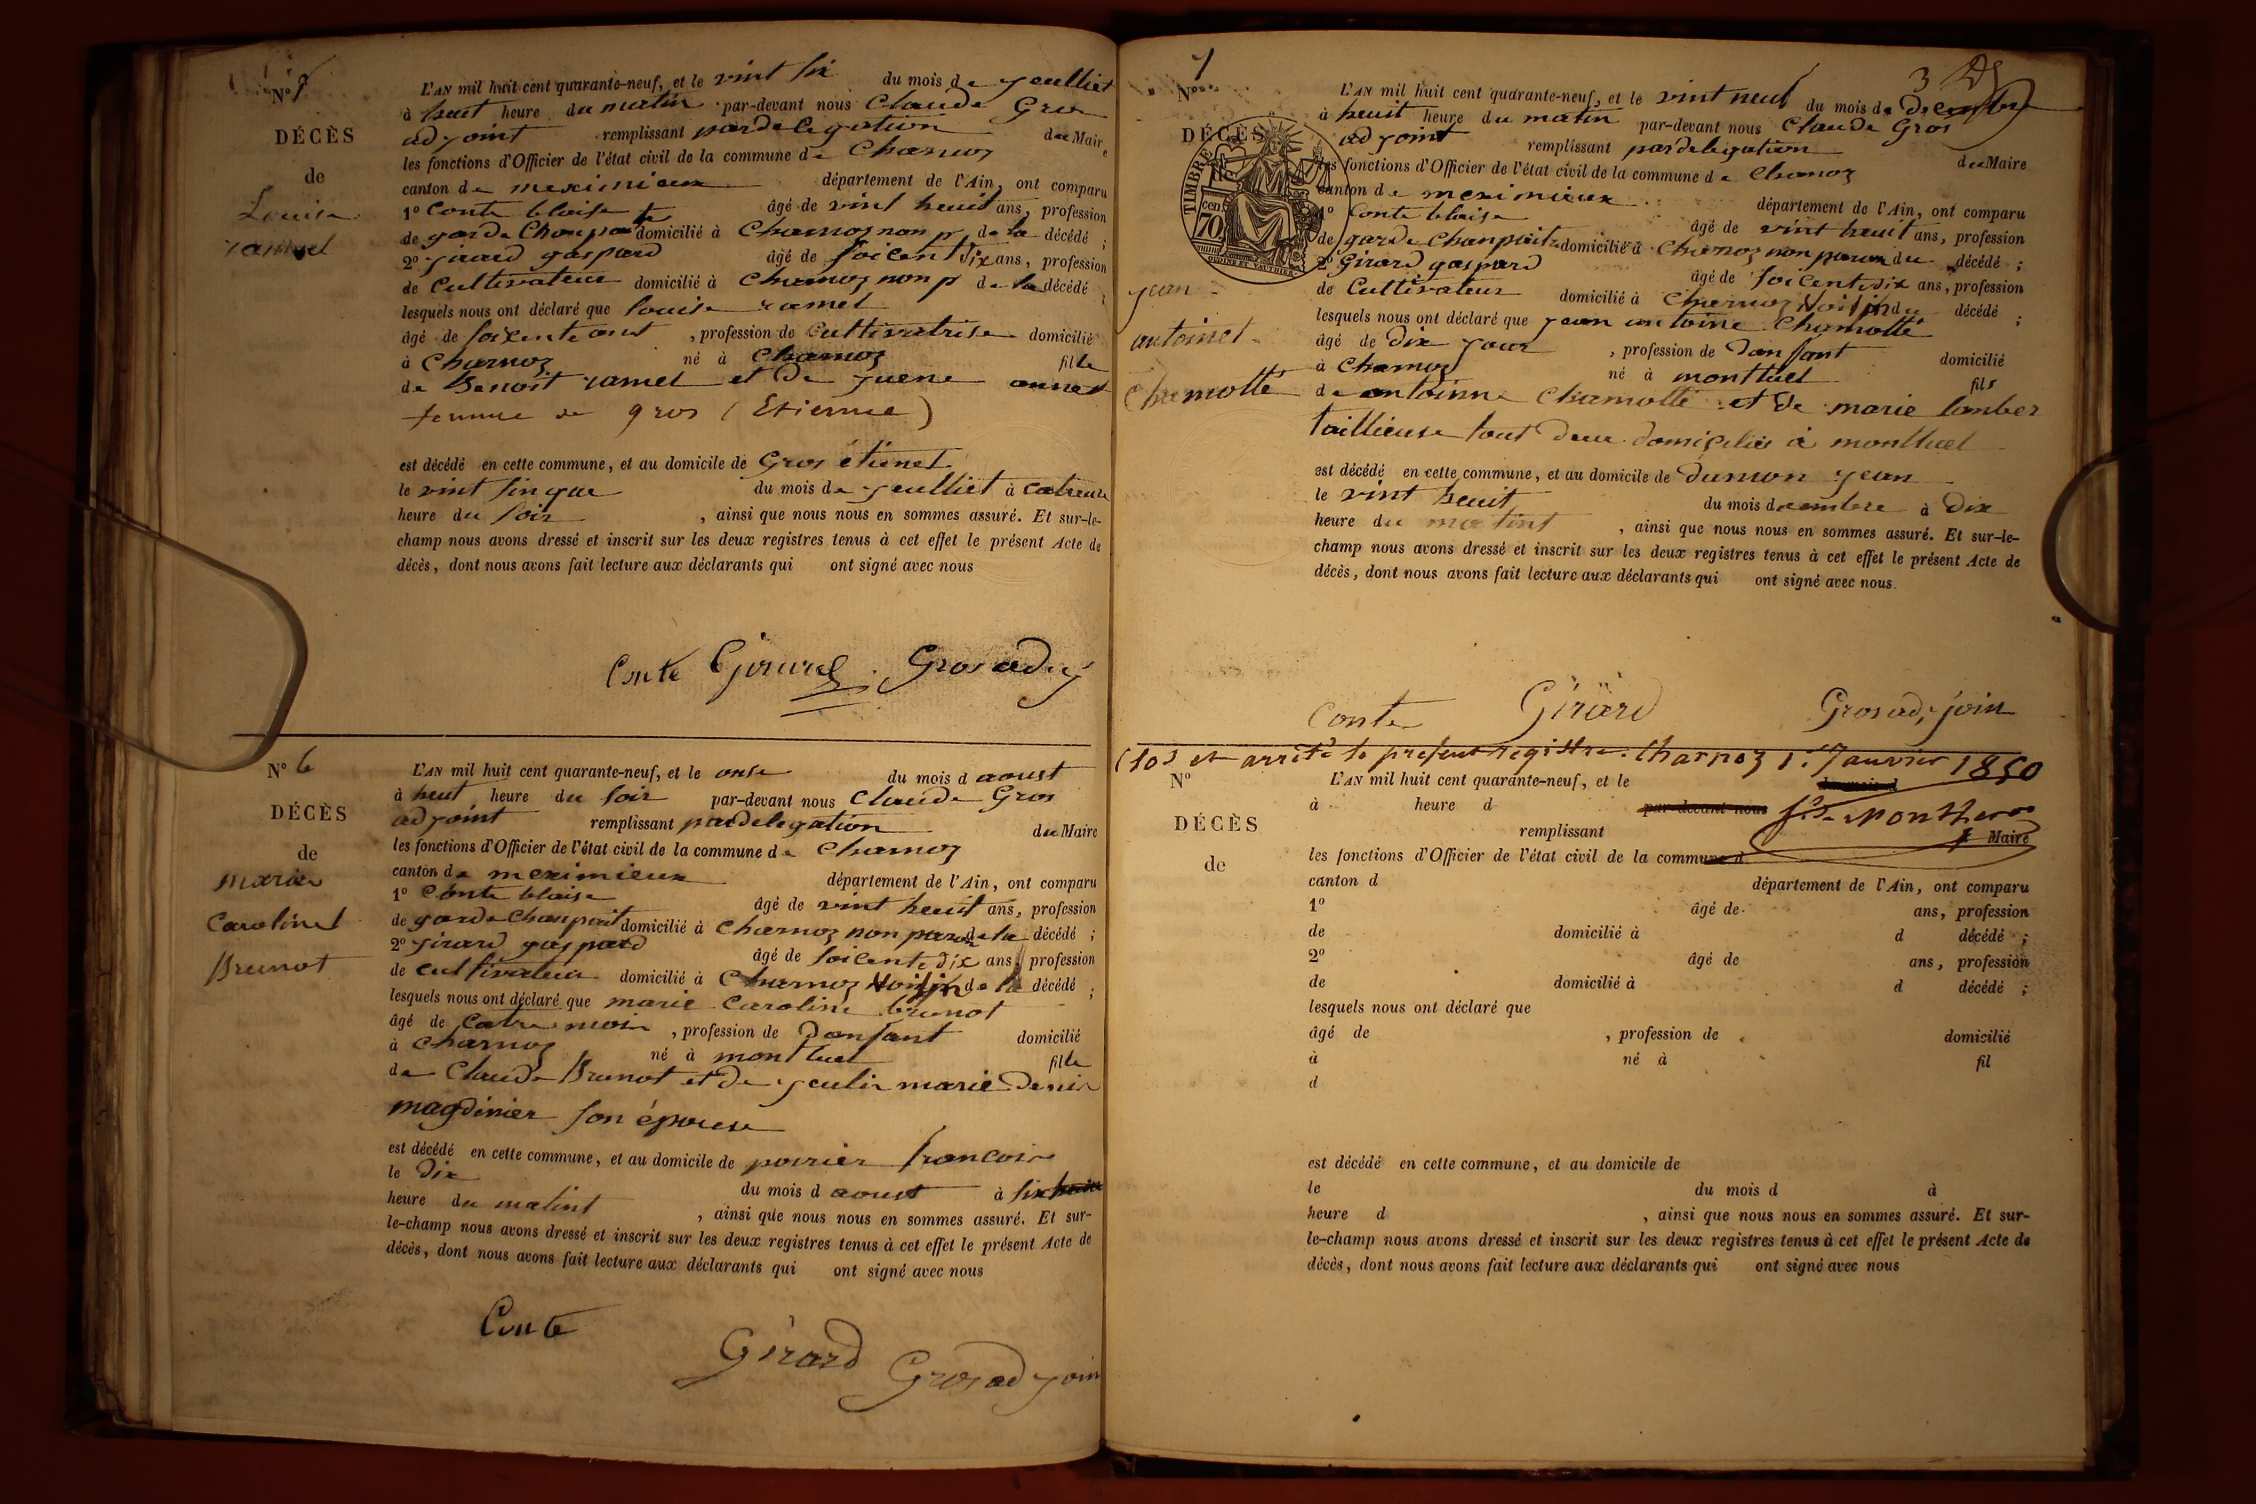 N° 5
DÉCÈS
de
Louise
ramel
L'AN mil huit cent quarante-neuf, et le vint six du mois de jeulliet
à heut heure du matin par-devant nous Claude Gros
adjoint remplissant pardelegation du Maire
les fonctions d'Officier de l'état civil de la commune de Charnoz
canton de meximieux département de l'Ain, ont comparu
1° Conte blaise âgé de vint heuit ans, profession
de garde Champaitte domicilié à Charnoz non p de la décédé ;
2° girard gaspard âgé de soicent dix ans, profession
de Cultivateur domicilié à Charnoz non p de la décédé ;
lesquels nous ont déclaré que louise ramel
âgé de soixente ans , profession de Cultivatrise domicilié
à Charnoz né à Charnoz fille
de Benoit ramel et de juene annet
femme de gros (Etienne)
est décédé en cette commune, et au domicile de Gros étienet
le vint sinque du mois de jeulliet à catreure
heure du soir , ainsi que nous nous en sommes assuré. Et sur-le-
champ nous avons dressé et inscrit sur les deux registres tenus à cet effet le présent Acte de
décès, dont nous avons fait lecture aux déclarants qui ont signé avec nous
Conte Girard Gros adj
N° 6
DÉCÈS
de
Marie
Carolinet
Brunot
L'AN mil huit cent quarante-neuf, et le onse du mois d aoust
à heut heure du soir par-devant nous Claude Gros
adjoint remplissant pardelegation du Maire
les fonctions d'Officier de l'état civil de la commune de Charnoz
canton de meximieux département de l'Ain, ont comparu
1° Conte blaise âgé de vint heuit ans, profession
de garde Chanpait domicilié à Charnoz non paran de la décédé ;
2° girard gaspard âgé de soicente dix ans, profession
de cultivateur domicilié à Charnoz Voisin de la décédé ;
lesquels nous ont déclaré que marie Caroline brunot
âgé de Catre mois , profession de Danfant domicilié
à Charnoz né à montluel fille
de Claude Brunot et de jeulie marie Denis
magdinier son épouse
est décédé en cette commune, et au domicile de poirier francois
le dix du mois d aoust à six
heure du matint , ainsi que nous nous en sommes assuré. Et sur-
le-champ nous avons dressé et inscrit sur les deux registres tenus à cet effet le présent Acte de
décès, dont nous avons fait lecture aux déclarants qui ont signé avec nous
Conte
Girard
Gros adjoin
3
7
N°
DÉCÈS
TIMBRE
70 cen
jean
antoinet
Chamotte
L'AN mil huit cent quarante-neuf, et le vint neuf du mois de Decembre
à heuit heure du matin par-devant nous Claude Gros
adjoint remplissant pardelegation du Maire
les fonctions d'Officier de l'état civil de la commune de Charnoz
canton de meximieux département de l'Ain, ont comparu
1° Conte blaise âgé de vint heuit ans, profession
de garde Chanpaitr domicilié à Charnoz non paran du décédé ;
2° Girard gaspard âgé de soicente dix ans, profession
de Cultivateur domicilié à Charnoz Voisin du décédé ;
lesquels nous ont déclaré que jean antoine Chamotte
âgé de dix jour , profession de Danfant domicilié
à Charnoz né à montluel fils
de antoinne Chamotte et de marie lamber
taillieuse tout deux domicilies à montluel
est décédé en cette commune, et au domicile de dumon jean
le vint heuit du mois decembre à Dix
heure du matint , ainsi que nous nous en sommes assuré. Et sur-le-
champ nous avons dressé et inscrit sur les deux registres tenus à cet effet le présent Acte de
décès, dont nous avons fait lecture aux déclarants qui ont signé avec nous.
Conte Girard Gros adjoin
Clos et arrité le present registre. Charnoz 1er Janvier 1850
N°
DÉCÈS
de
L'AN mil huit cent quarante-neuf, et le du mois d
à heure d par-devant nous
remplissant Maire
les fonctions d'Officier de l'état civil de la commune d
canton d département de l'Ain, ont comparu
1° âgé de ans, profession
de domicilié à d décédé ;
2° âgé de ans, profession
de domicilié à d décédé ;
lesquels nous ont déclaré que
âgé de , profession de domicilié
à né à fil
d
est décédé en cette commune, et au domicile de
le du mois d à
heure d , ainsi que nous nous en sommes assuré. Et sur-
le-champ nous avons dressé et inscrit sur les deux registres tenus à cet effet le présent Acte de
décès, dont nous avons fait lecture aux déclarants qui ont signé avec nous